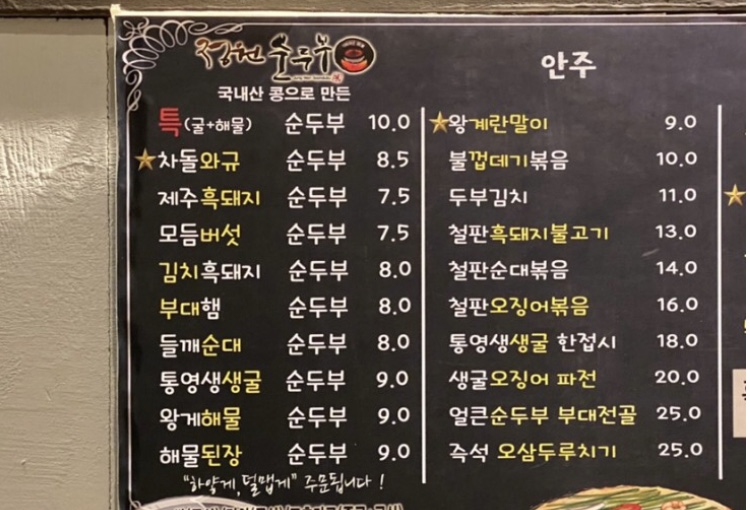 정원 순두부
국내산 콩으로 만든
특(굴+해물) 순두부 10.0
차돌와규 순두부 8.5
제주흑돼지 순두부 7.5
모듬버섯 순두부 7.5
김치흑돼지 순두부 8.0
부대햄 순두부 8.0
들깨순대 순두부 8.0
통영생생굴 순두부 9.0
왕게해물 순두부 9.0
해물된장 순두부 9.0
"하얗게, 덜맵게" 주문됩니다!
안주
왕계란말이 9.0
불껍데기볶음 10.0
두부김치 11.0
철판흑돼지불고기 13.0
철판순대볶음 14.0
철판오징어볶음 16.0
통영생생굴 한접시 18.0
생굴오징어 파전 20.0
얼큰순두부 부대전골 25.0
즉석 오삼두루치기 25.0